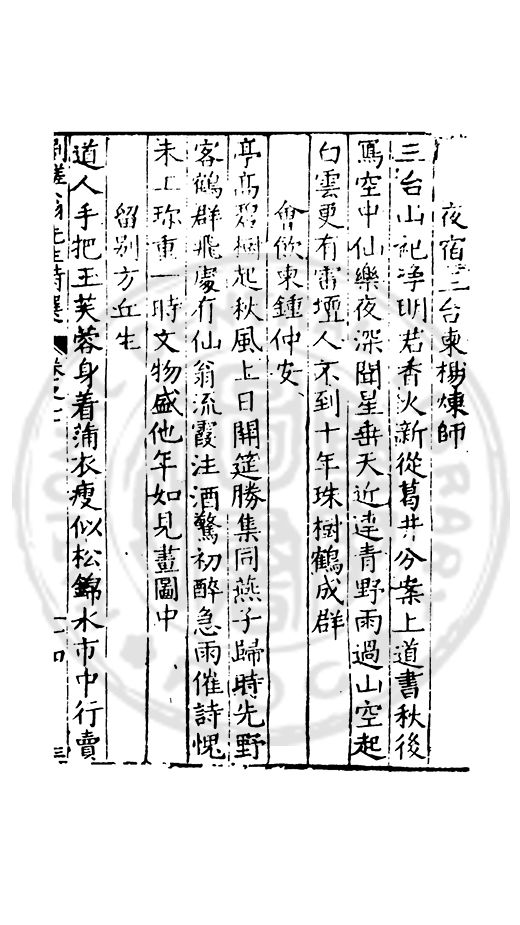 夜宿三台柬楊煉師
三台山祀淨明君香火新從葛井分案上道書秋後
寫空中仙樂夜深聞星垂天近連青野雨過山空起
白雲更有雷壇人不到十年珠樹鶴成群
會飲柬鍾仲安
亭高碧樹起秋風上日開筵勝集同燕子歸時先野
客鶴群飛處有仙翁流霞注酒驚初醉急雨催詩愧
未工珍重一時文物盛他年如見畫圖中
留別方丘生
道人手把玉芙蓉身着蒲衣瘦似松錦水市中行賣
槎翁先生詩選 卷之